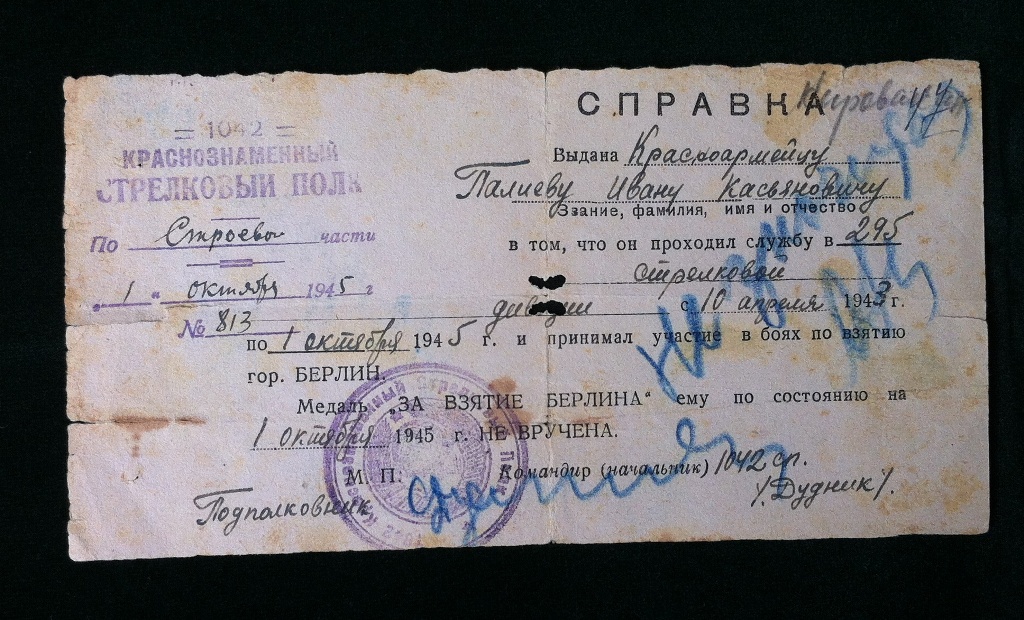 = 1042 =
КРАСНОЗНАМЕННЫЙ
СТРЕЛКОВЫЙ ПОЛК
По Строевой части
„1“ октября 1945 г
№ 813
СПРАВКА
Выдана Красноармейцу
Палиеву Ивану Касьяновичу
Звание, фамилия, имя и отчество
в том, что он проходил службу в 295
стрелковой
дивизии с 10 апреля 1943 г.
по 1 октября 1945 г. и принимал участие в боях по взятию
гор. БЕРЛИН.
Медаль „ЗА ВЗЯТИЕ БЕРЛИНА“ ему по состоянию на
1 октября 1945 г. НЕ ВРУЧЕНА.
М. П. Командир (начальник) 1042 сп.
Подполковник /Дудник/.